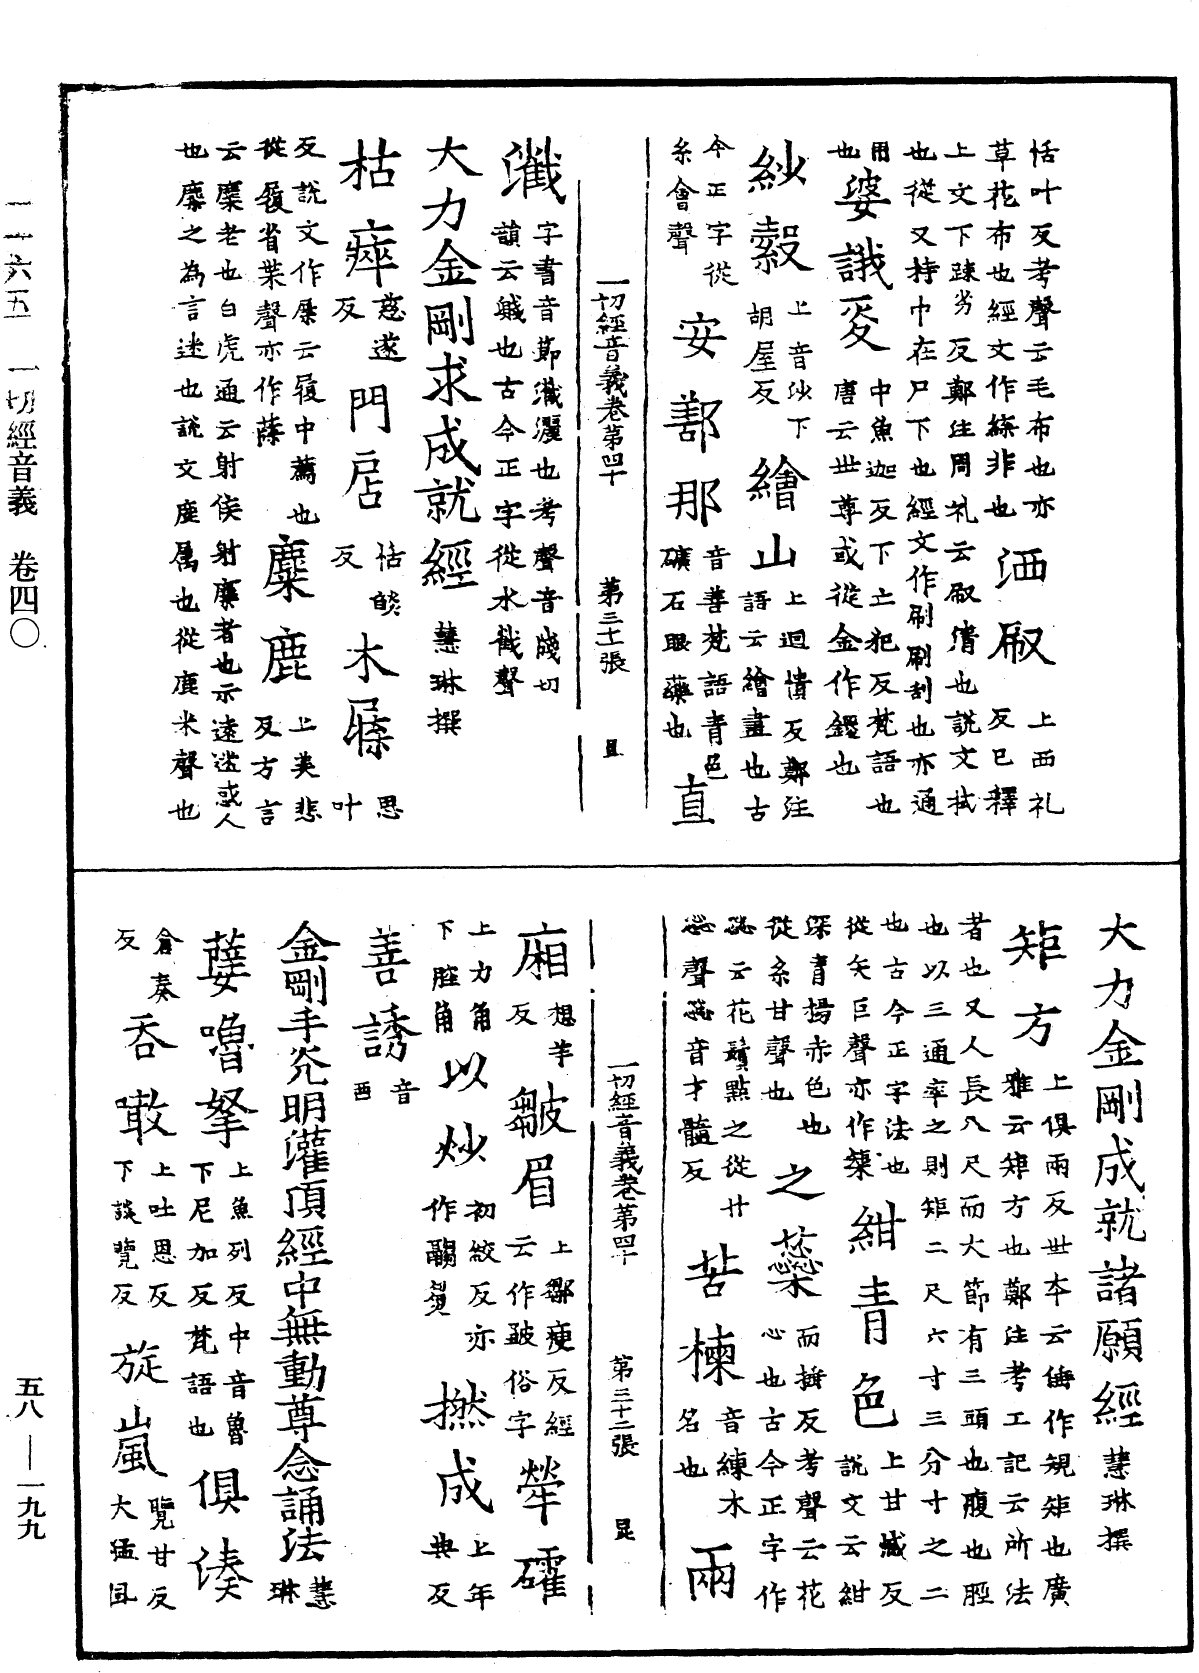 一一六五 一切經音義 卷四〇
恬叶反考聲云毛布也亦
草花布也經文作緤非也
洒㕞
上西礼
反已釋
上文下踈劣反鄭注周礼云㕞清也說文拭
也從又持巾在尸下也經文作刷刷刮也亦通
用
也
婆誐鑁
中魚迦反下亡犯反梵語也
唐云世尊或從金作鑁也
紗縠
上音沙下
胡屋反
繪山
上迴憒反鄭注
語云繪畫也古
今正字從
糸會聲
安鄯那
音善梵語青色
礦石眼藥也
直
一切經音義卷第四十 第三十一張 昆
瀸
字書音節瀸灑也考聲音㦰切
韻云瀸也古今正字從水韱聲
大力金剛求成就經 慧琳撰
枯瘁
慈遂
反
門㢆
恬㷿
反
木屧
思
叶
反說文作屟云履中薦也
從履省枼聲亦作䕈
麋鹿
上美悲
反方言
云麋老也白虎通云射侯射麋者也示遠迷惑人
也麋之為言迷也說文鹿屬也從鹿米聲也
大力金剛成就諸願經 慧琳撰
矩方
上俱雨反世本云倕作規矩也廣
雅云矩方也鄭注考工記云所法
者也又人長八尺而大節有三頭也腹也脛
也以三通率之則矩二尺六寸三分寸之二
也古今正字法也
從矢巨聲亦作榘
紺青色
上甘憾反
說文云紺
深青揚赤色也
從糸甘聲也
之蘂
而捶反考聲云花
心也古今正字作
蕊云花鬚點之從廾
惢聲惢音才髓反
苦楝
音練木
名也
兩
一切經音義卷第四十 第三十二張 昆
廂
想羊
反
皺眉
上鄒瘦反經
云作皱俗字
犖㩁
上力角
下腔角
以炒
初絞反亦
作䰞㷅
撚成
上年
典反
善誘
音
酉
金剛手光明灌頂經中無動尊念誦法 慧琳
嬖嚕拏
上魚列反中音魯
下尼加反梵語也
俱湊
倉奏
反
吞噉
上吐恩反
下談覽反
旋嵐
覽甘反
大猛風
五八——一九九